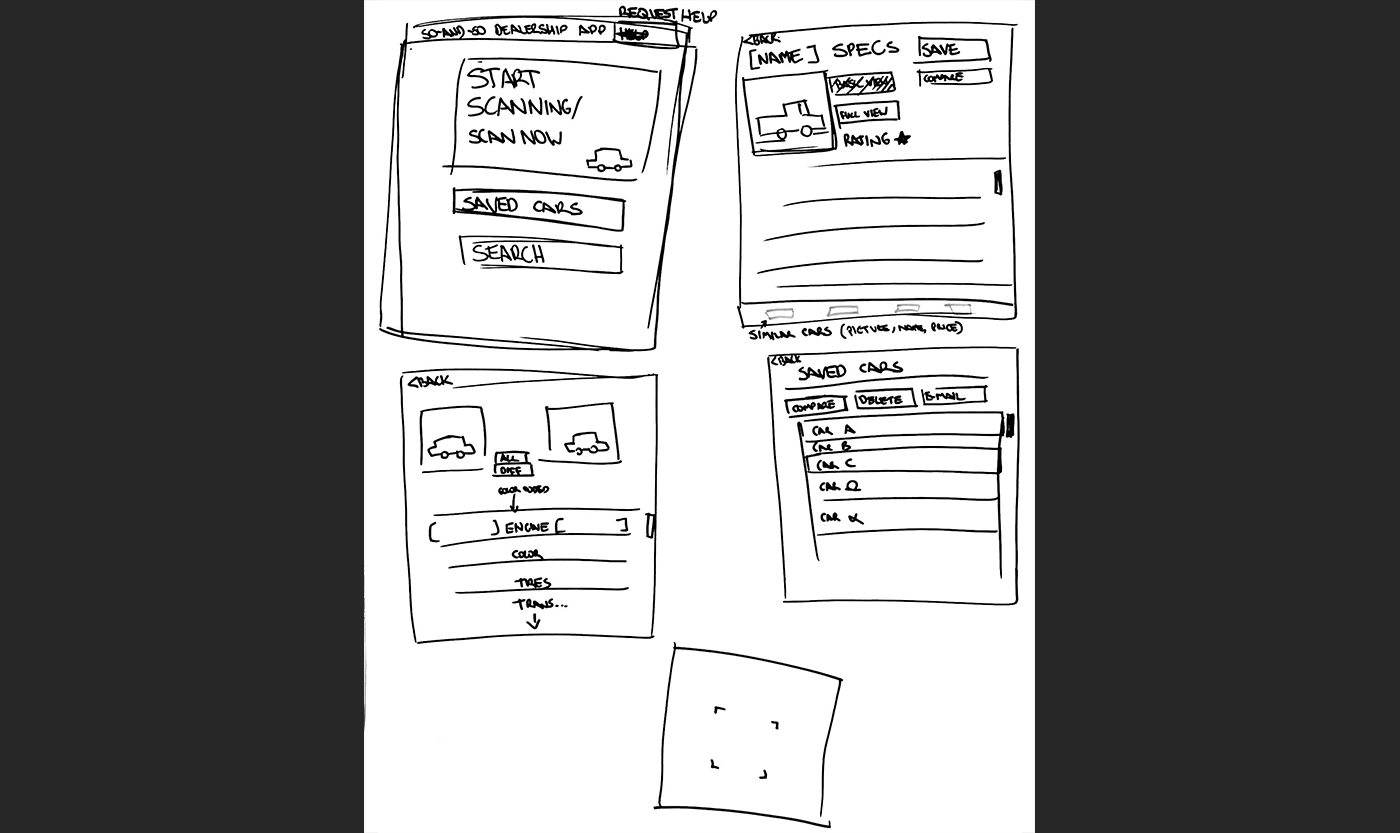 REQUEST HELP
SO-AND-SO DEALERSHIP APP
START
SCANNING/
SCAN NOW
SAVED CARS
SEARCH
<BACK
[NAME] SPECS
SAVE
COMPARE
BASIC VIEW
FULL VIEW
RATING ★
SIMILAR CARS (PICTURE, NAME, PRICE)
<BACK
ALL
DIFF
COLOR CODED
[ ] ENGINE [ ]
COLOR
TIRES
TRANS...
<BACK
SAVED CARS
COMPARE DELETE E-MAIL
CAR A
CAR B
CAR C
CAR Ω
CAR α